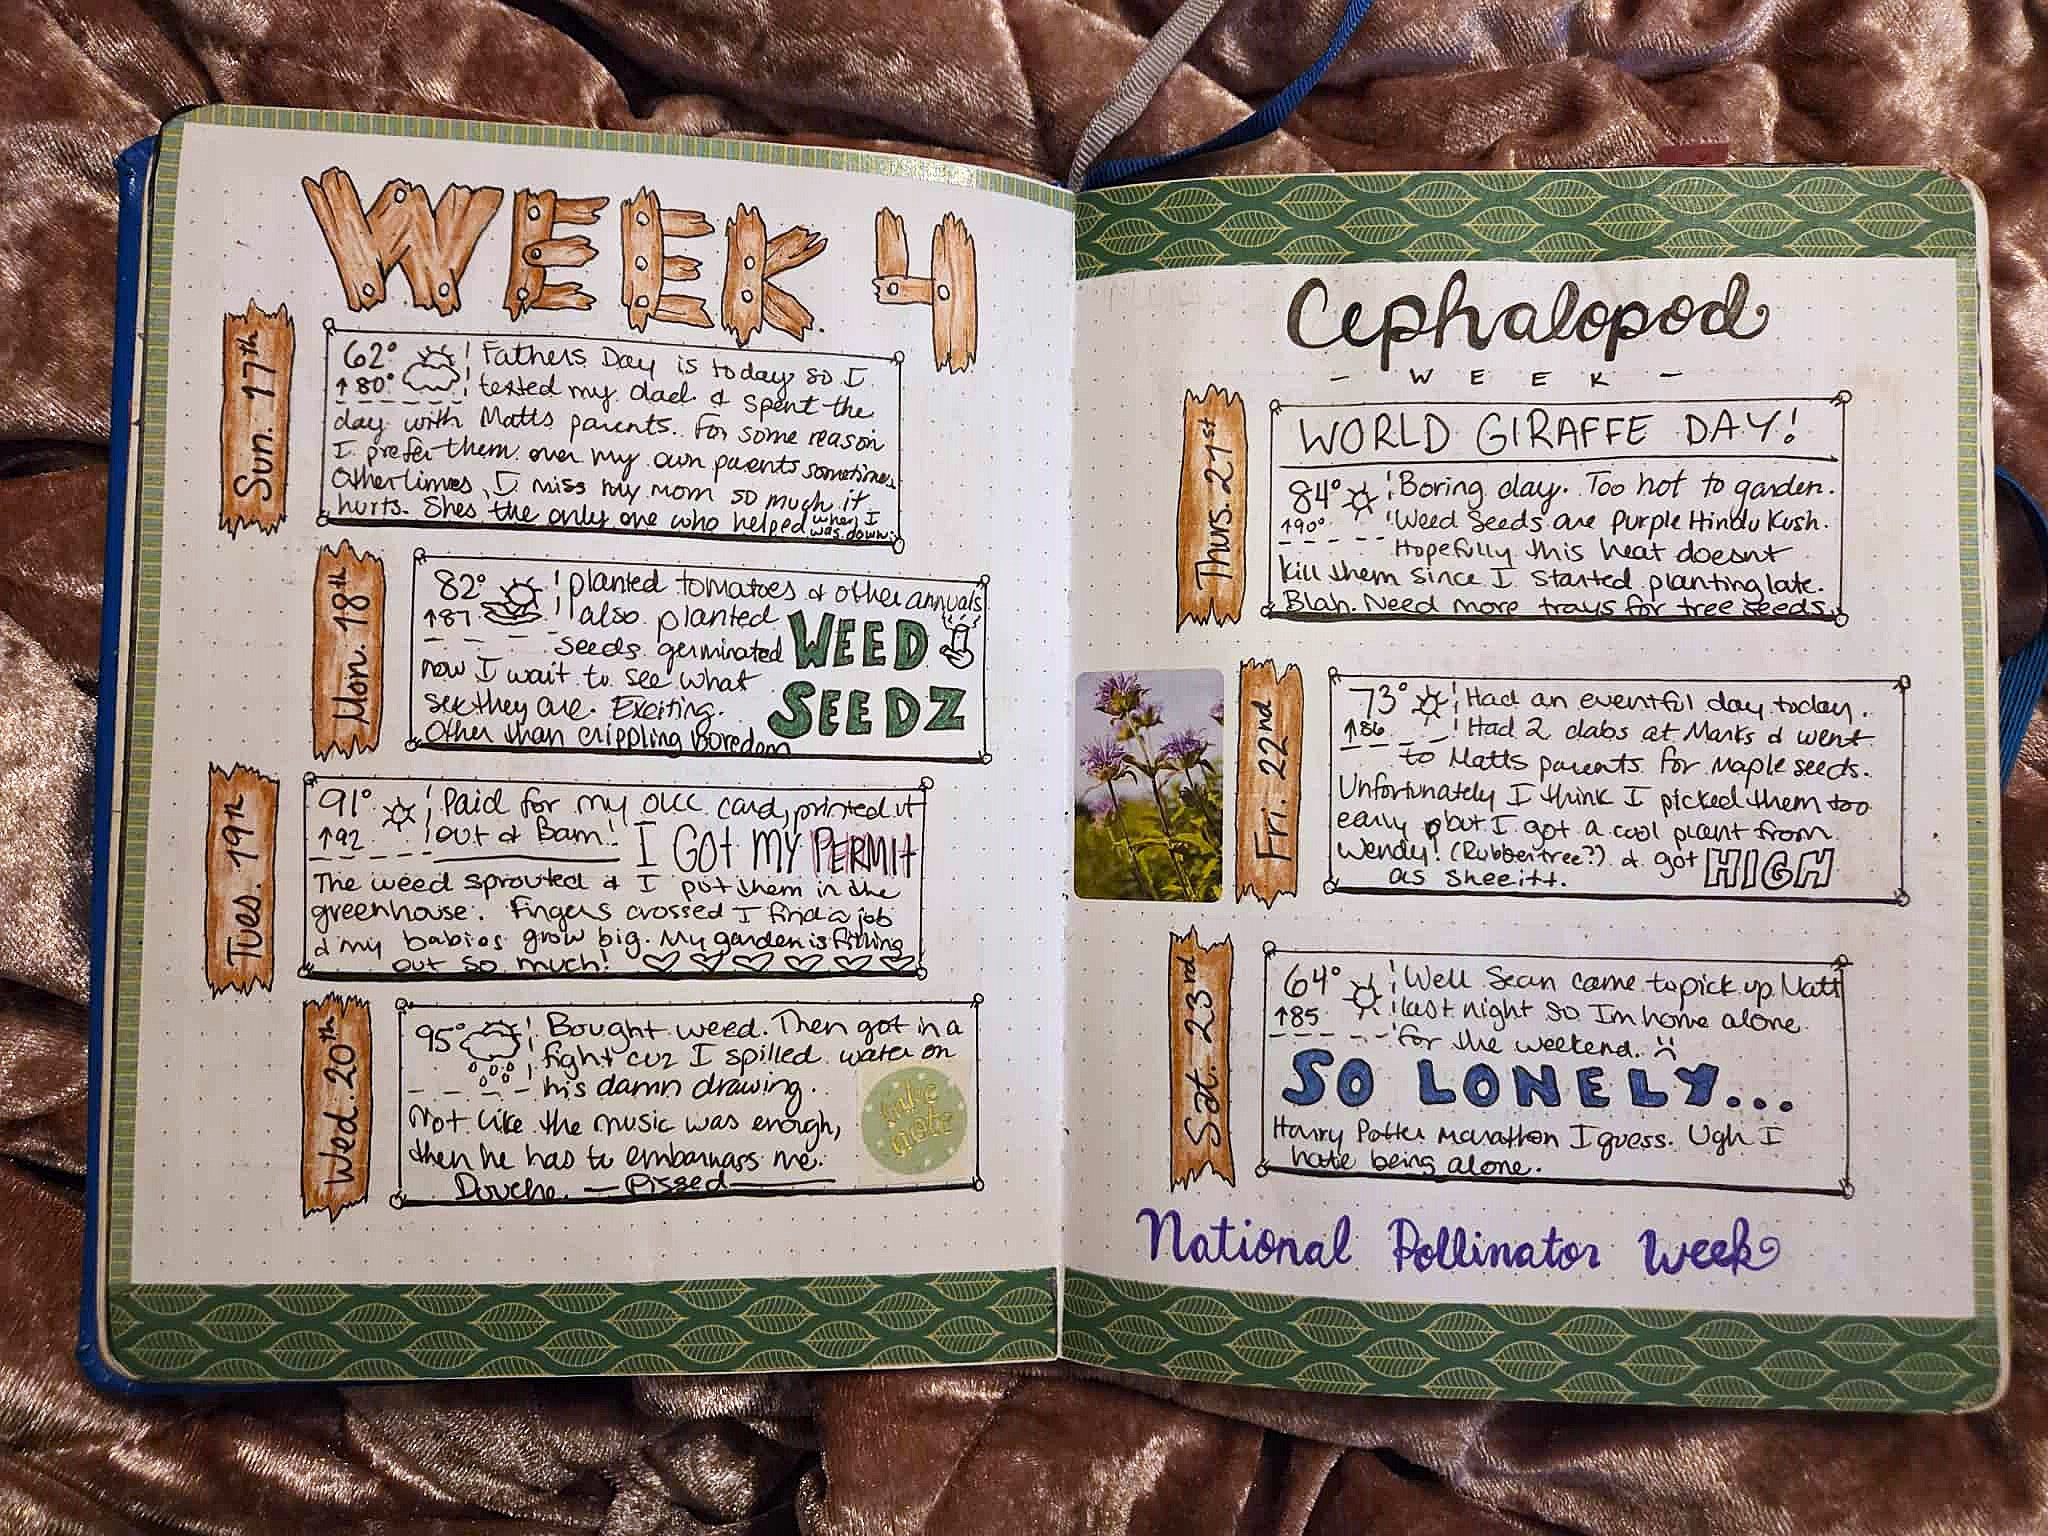 WEEK 4
Sun. 17th
62° Fathers Day is today so I
↑80° texted my dad & spent the
day with Matts parents. For some reason
I prefer them over my own parents sometimes
Other times, I miss my mom so much it
hurts. Shes the only one who helped when I
was down.
Mon. 18th
82° planted tomatoes & other annuals
↑87 also planted
seeds germinated WEED
now I wait to see what
sex they are. Exciting. SEEDZ
Other than crippling boredom
Tues. 19th
91° Paid for my OLCC card, printed it
↑92 out & Bam! I GOt MY PERMIt
The weed sprouted & I put them in the
greenhouse. Fingers crossed I find a job
& my babies grow big. My garden is filling
out so much!
Wed. 20th
95° Bought weed. Then got in a
fight cuz I spilled water on
his damn drawing.
Not like the music was enough,
then he has to embarrass me.
Douche. — Pissed —
take note
Cephalopod
- WEEK -
Thurs. 21st
WORLD GIRAFFE DAY!
84° Boring day. Too hot to garden.
↑90° Weed Seeds are Purple Hindu Kush.
Hopefully this heat doesnt
kill them since I started planting late.
Blah. Need more trays for tree seeds.
Fri. 22nd
73° Had an eventful day today.
↑86 Had 2 dabs at Marks & went
to Matts parents for Maple seeds.
Unfortunately I think I picked them too
early but I got a cool plant from
Wendy! (Rubbertree?) & got HIGH
as sheeitt.
Sat. 23rd
64° Well Sean came to pick up Matt
↑85 last night so Im home alone
for the weekend. :(
SO LONELY...
Harry Potter marathon I guess. Ugh I
hate being alone.
National Pollinator Week